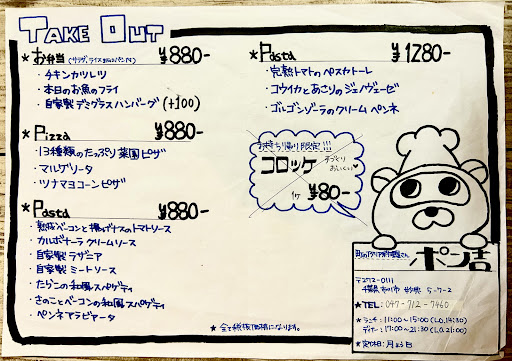 TAKE OUT
★お弁当 (サラダ、ライス又はパン付) ¥880-
・チキンカツレツ
・本日のお魚のフライ
・自家製デミグラスハンバーグ (+100)
★Pizza ¥880-
・13種類のたっぷり菜園ピザ
・マルゲリータ
・ツナマヨコーンピザ
★Pasta ¥880-
・熟成ベーコンと揚げナスのトマトソース
・カルボナーラクリームソース
・自家製ラザニア
・自家製ミートソース
・たらこの和風スパゲティ
・きのことベーコンの和風スパゲティ
・ペンネアラビアータ
★Pasta ¥1280-
・完熟トマトのペスカトーレ
・コウイカとあさりのジェノヴェーゼ
・ゴルゴンゾーラのクリームペンネ
お持ち帰り限定!!!
コロッケ
手づくり
おいしい♥
1ヶ ¥80-
ポン吉
〒272-0111
千葉県市川市妙典 5-7-2
★TEL: 047-712-7460
★ランチ:11:00~15:00 (L.O.14:30)
ディナー:17:00~21:30 (L.O.21:00)
★定休日:月
★全て税抜価格になります。